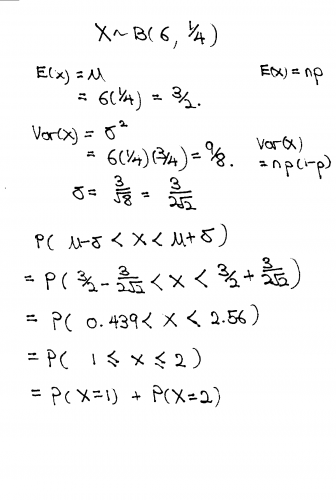 X~B(6, 1/4)
E(x) = μ E(x) = np
= 6(1/4) = 3/2.
Var(x) = σ²
= 6(1/4)(3/4) = 9/8. Var(x) = np(1-p)
σ = 3/√8 = 3/2√2
P( μ-σ < x < μ+σ )
= P( 3/2 - 3/2√2 < x < 3/2 + 3/2√2 )
= P( 0.439 < x < 2.56 )
= P( 1 ≤ x ≤ 2 )
= P(X=1) + P(X=2)